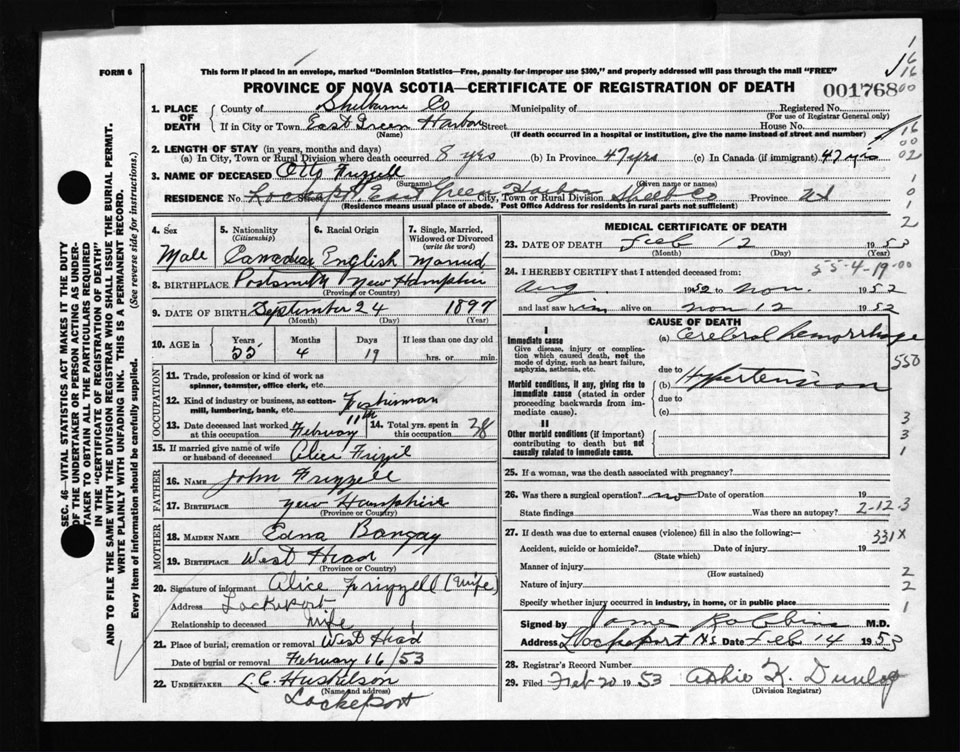 FORM 6
This form if placed in an envelope, marked "Dominion Statistics—Free, penalty for improper use $300," and properly addressed will pass through the mail "FREE"
PROVINCE OF NOVA SCOTIA—CERTIFICATE OF REGISTRATION OF DEATH
001768
1. PLACE OF DEATH
County of Shelburne Co Municipality of Registered No.
(For use of Registrar General only)
If in City or Town East Green Harbor Street House No.
(Name) (If death occurred in a hospital or institution, give the name instead of street and number)
2. LENGTH OF STAY (in years, months and days)
(a) In City, Town or Rural Division where death occurred 8 yrs (b) In Province 47 yrs (c) In Canada (if immigrant) 47 yrs
3. NAME OF DECEASED Otto Frizzell
(Surname) (Given name or names)
RESIDENCE No. Lockeport Street East Green Harbour City, Town or Rural Division Shelb Co Province NS
(Residence means usual place of abode. Post Office Address for residents in rural parts not sufficient)
4. Sex
Male
5. Nationality (Citizenship)
Canadian
6. Racial Origin
English
7. Single, Married, Widowed or Divorced (write the word)
Married
8. BIRTHPLACE Portsmith New Hampshire
(Province or Country)
9. DATE OF BIRTH September 24 1897
(Month) (Day) (Year)
10. AGE in
Years Months Days If less than one day old
55 4 19 hrs. or min.
OCCUPATION
11. Trade, profession or kind of work as spinner, teamster, office clerk, etc.
12. Kind of industry or business, as cotton-mill, lumbering, bank, etc. Fisherman
13. Date deceased last worked at this occupation February 11th
14. Total yrs. spent in this occupation 28
15. If married give name of wife or husband of deceased Alice Frizzil
FATHER
16. NAME John Frizzell
17. BIRTHPLACE New Hampshire
(Province or Country)
MOTHER
18. MAIDEN NAME Edna Bangay
19. BIRTHPLACE West Head
(Province or Country)
20. Signature of informant Alice Frizzell (Wife)
Address Lockeport
Relationship to deceased Wife
21. Place of burial, cremation or removal West Head
Date of burial or removal February 16/53
22. UNDERTAKER L.C. Huskilson
(Name and address)
Lockeport
MEDICAL CERTIFICATE OF DEATH
23. DATE OF DEATH Feb 12 1953
(Month) (Day) (Year)
55-4-19-00
24. I HEREBY CERTIFY that I attended deceased from:
Aug 1952 to Nov. 1952
and last saw him alive on Nov 12 1952
CAUSE OF DEATH
I
Immediate cause
Give disease, injury or complication which caused death, not the mode of dying, such as heart failure, asphyxia, asthenia, etc.
(a) Cerebral hemorrhage
due to
Morbid conditions, if any, giving rise to immediate cause (stated in order proceeding backwards from immediate cause).
(b) Hypertension
due to
(c)
II
Other morbid conditions (if important) contributing to death but not causally related to immediate cause.
25. If a woman, was the death associated with pregnancy?
26. Was there a surgical operation? no Date of operation 19
State findings Was there an autopsy?
2-12-3
27. If death was due to external causes (violence) fill in also the following:—
331X
Accident, suicide or homicide? Date of injury 19
(State which)
Manner of injury
(How sustained)
Nature of injury
Specify whether injury occurred in industry, in home, or in public place
Signed by James Robbins M.D.
Address Lockeport N.S. Date Feb 14 1953
28. Registrar's Record Number
29. Filed Feb 20 1953 K. Dunlop
(Division Registrar)
SEC. 46—VITAL STATISTICS ACT MAKES IT THE DUTY
OF THE UNDERTAKER OR PERSON ACTING AS UNDERTAKER TO OBTAIN ALL THE PARTICULARS REQUIRED
IN THE "CERTIFICATE OF REGISTRATION OF DEATH"
AND TO FILE THE SAME WITH THE DIVISION REGISTRAR WHO SHALL ISSUE THE BURIAL PERMIT.
WRITE PLAINLY WITH UNFADING INK. THIS IS A PERMANENT RECORD.
Every item of information should be carefully supplied. (See reverse side for instructions.)